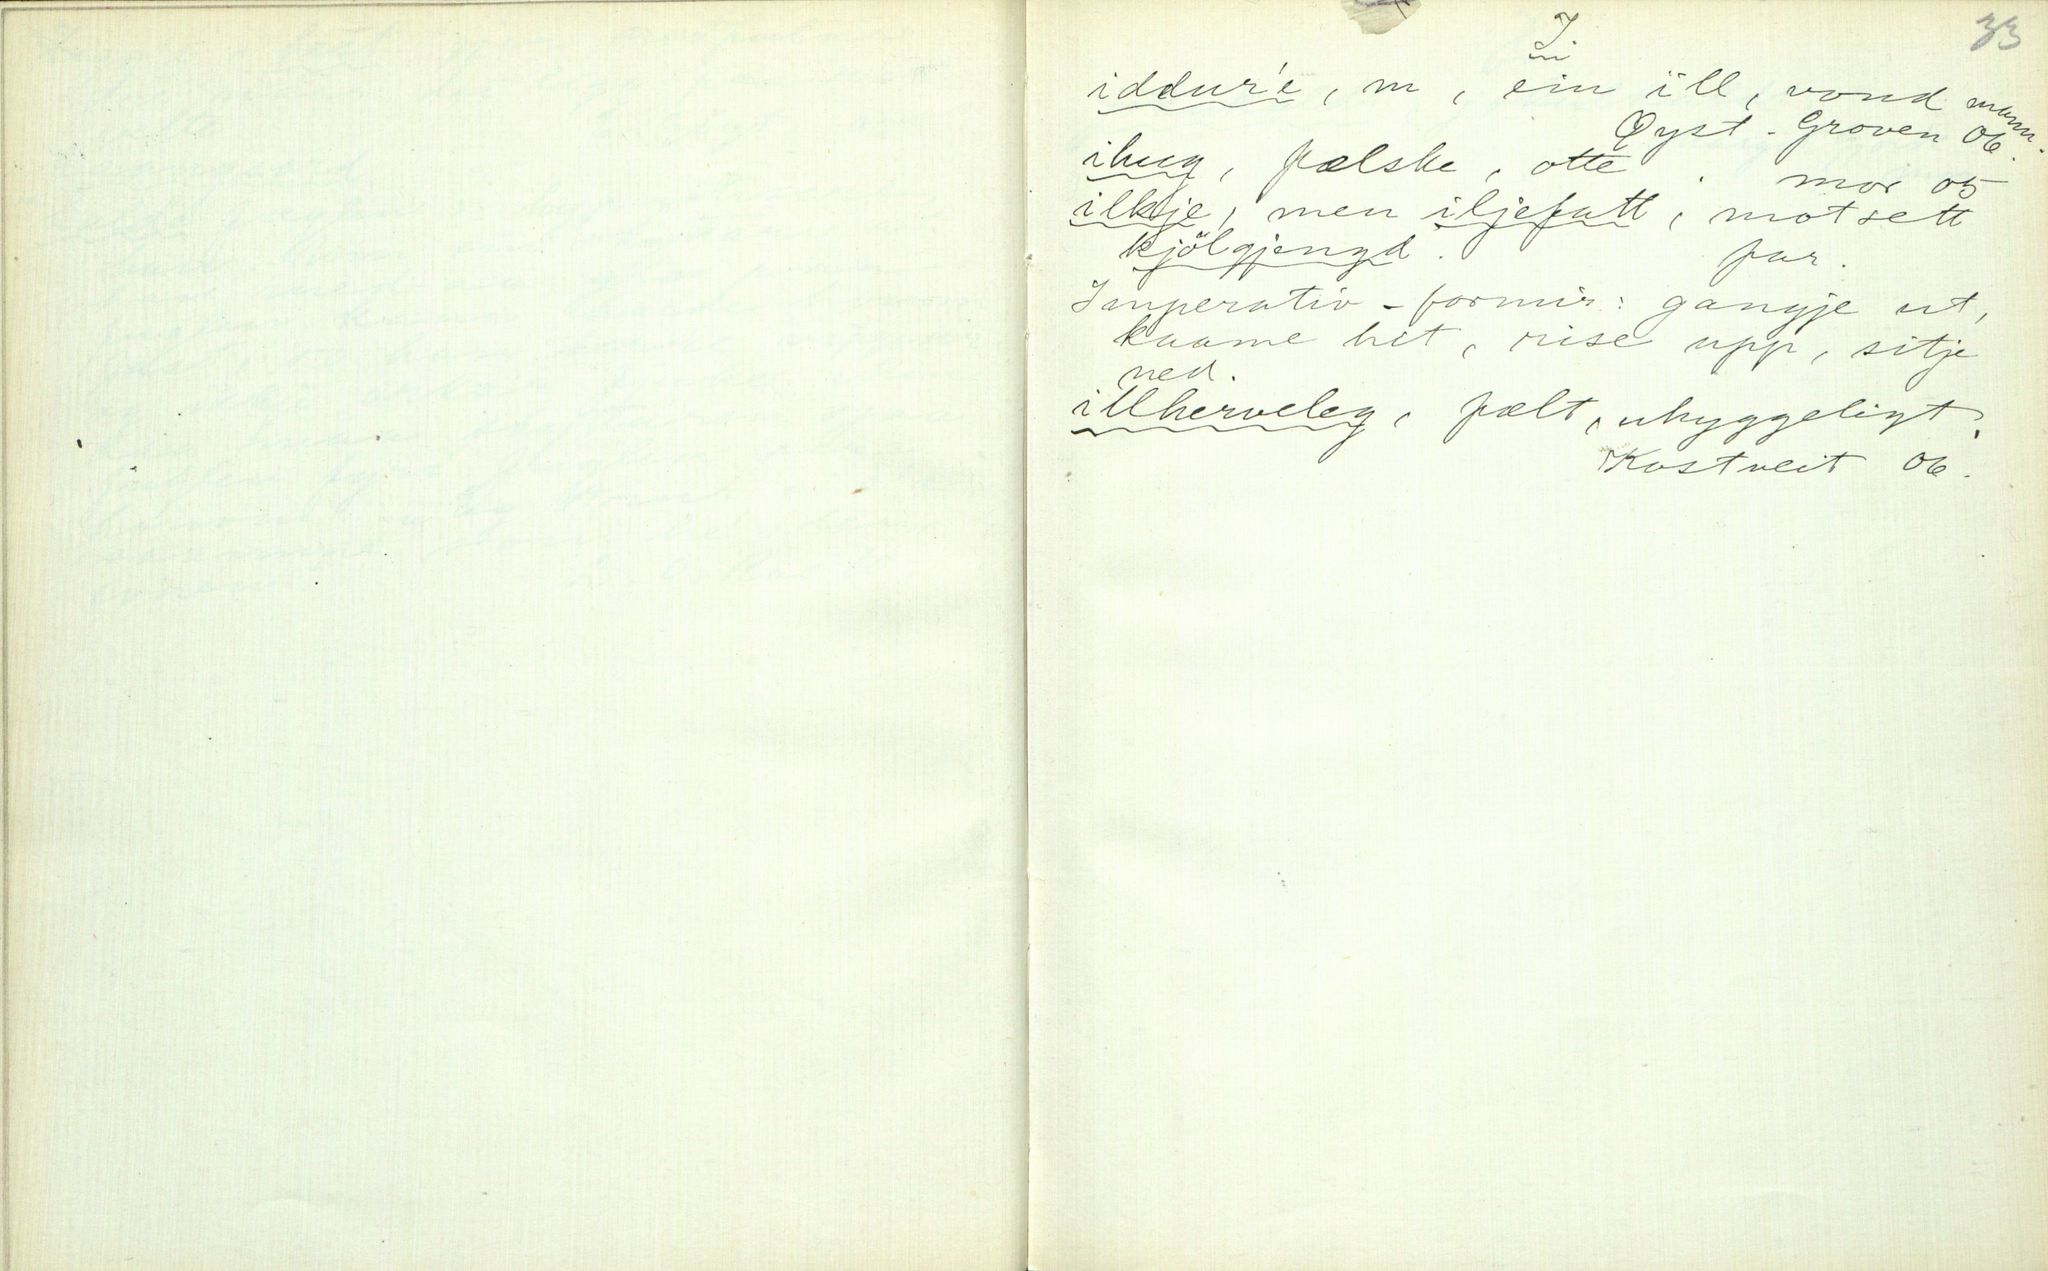 33
I.
iddur'e, m, ein ill, vond mann.
Øyst. Groven 06.
ihug, fælske, otte. mor 05
ilkje, men iljefatt, motsett
kjölgjengd. far.
Imperativ-formir: gangje ut,
kaame hit, rise upp, sitje
ned.
illherveleg, fælt, uhyggeligt.
Kostveit 06.